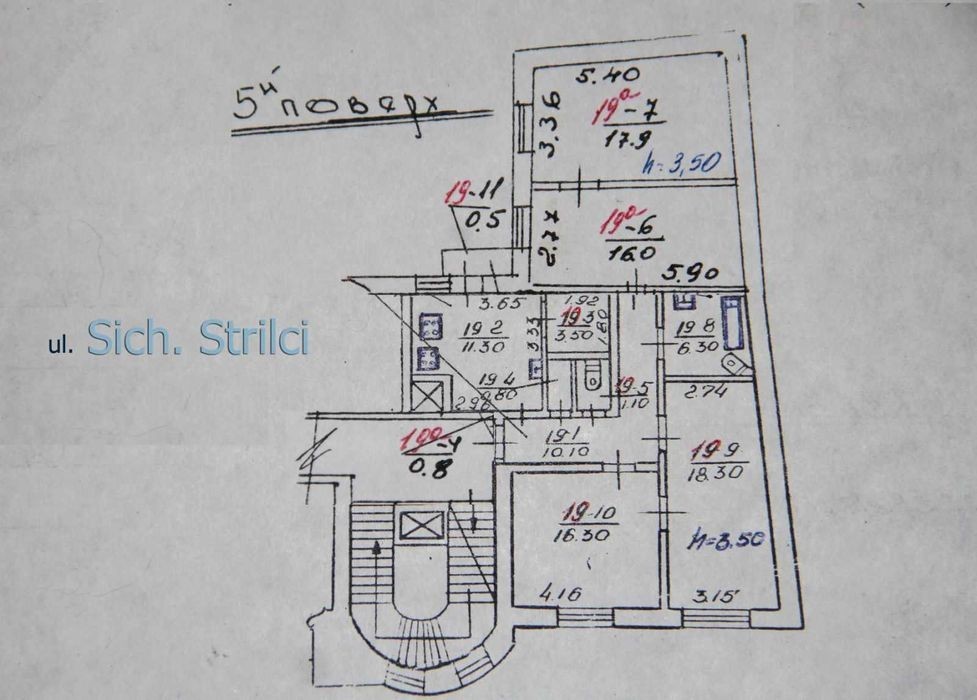 5й поверх
5.40
3.36
19а-7
17.9
h=3,50
19-11
0.5
2.77
19а-6
16.0
5.90
ul. Sich. Strilci
3.65
19 2
11.30
3.33
1.92
19 3
3.50
1.80
19 8
6.30
19 4
0.80
2.98
19-5
1.10
2.74
19-1
10.10
-4
0.8
19 9
18.30
19-10
16.30
h=3.50
4.16
3.15